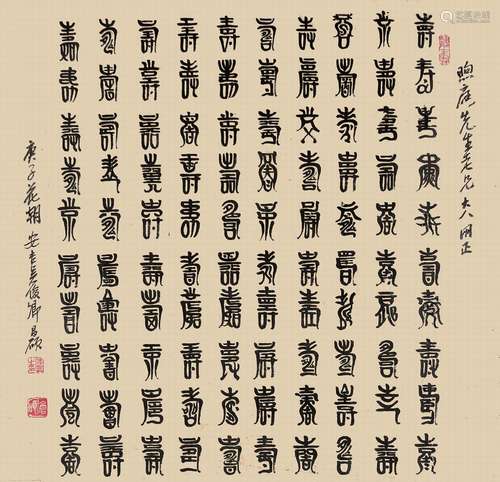 煦庭先生老兄大人正
壽壽壽壽壽壽壽壽壽壽
壽壽壽壽壽壽壽壽壽壽
壽壽壽壽壽壽壽壽壽壽
壽壽壽壽壽壽壽壽壽壽
壽壽壽壽壽壽壽壽壽壽
壽壽壽壽壽壽壽壽壽壽
壽壽壽壽壽壽壽壽壽壽
壽壽壽壽壽壽壽壽壽壽
壽壽壽壽壽壽壽壽壽壽
壽壽壽壽壽壽壽壽壽壽
庚子花朝安吉吳俊卿昌碩